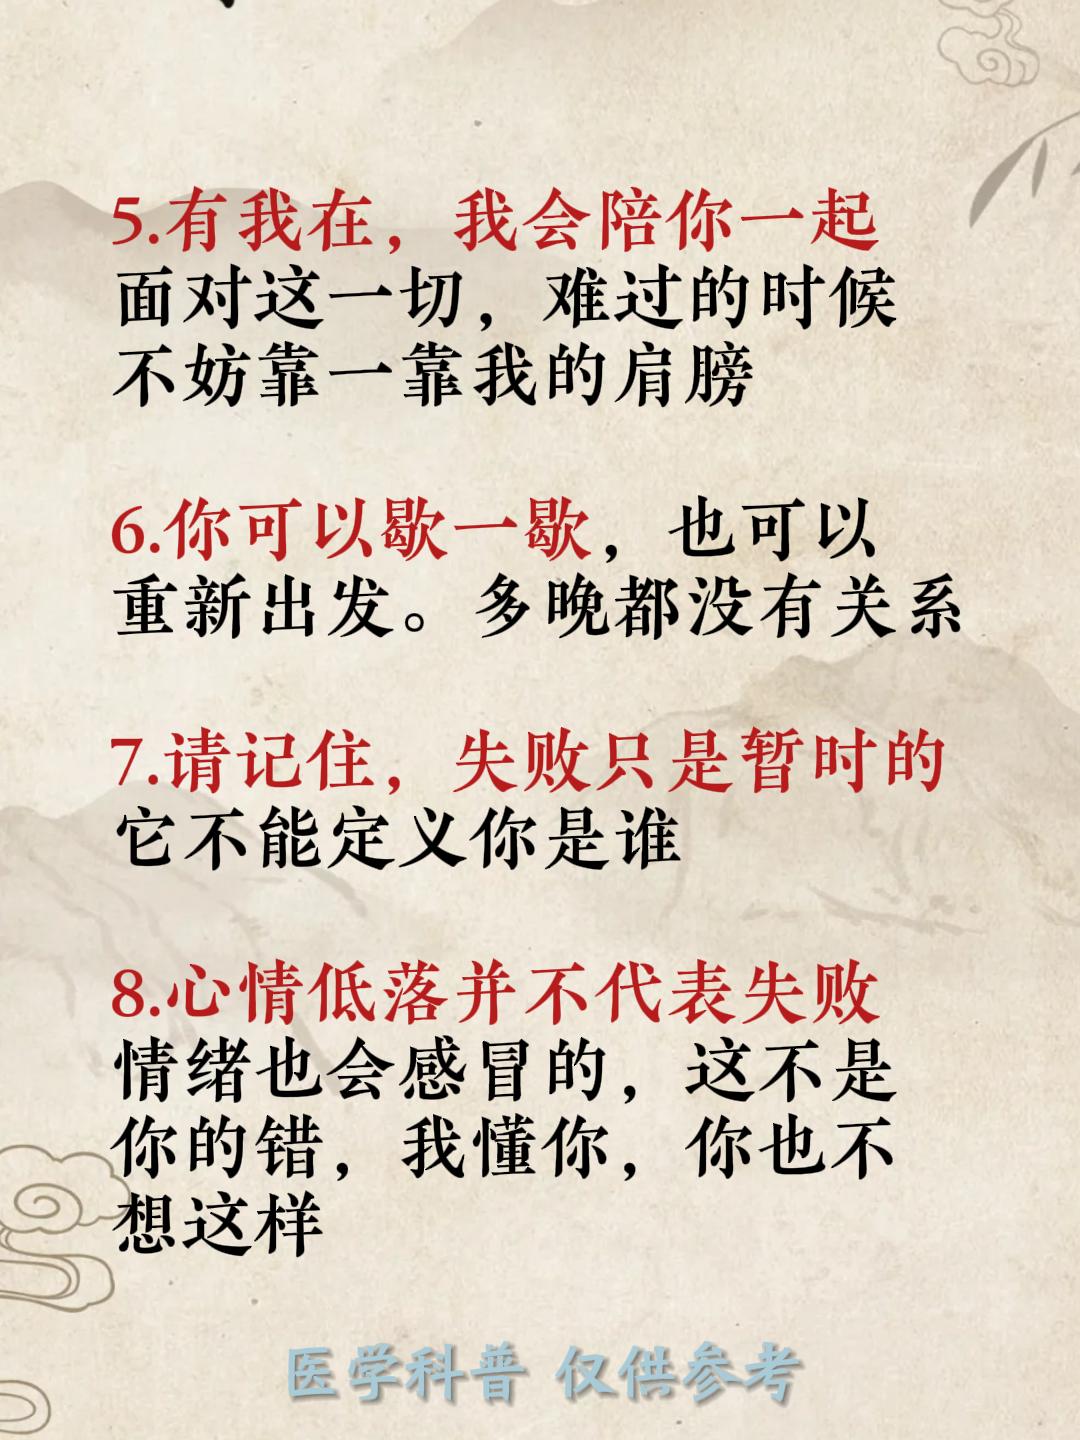 5.有我在，我会陪你一起
面对这一切，难过的时候
不妨靠一靠我的肩膀
6.你可以歇一歇，也可以
重新出发。多晚都没有关系
7.请记住，失败只是暂时的
它不能定义你是谁
8.心情低落并不代表失败
情绪也会感冒的，这不是
你的错，我懂你，你也不
想这样
医学科普 仅供参考